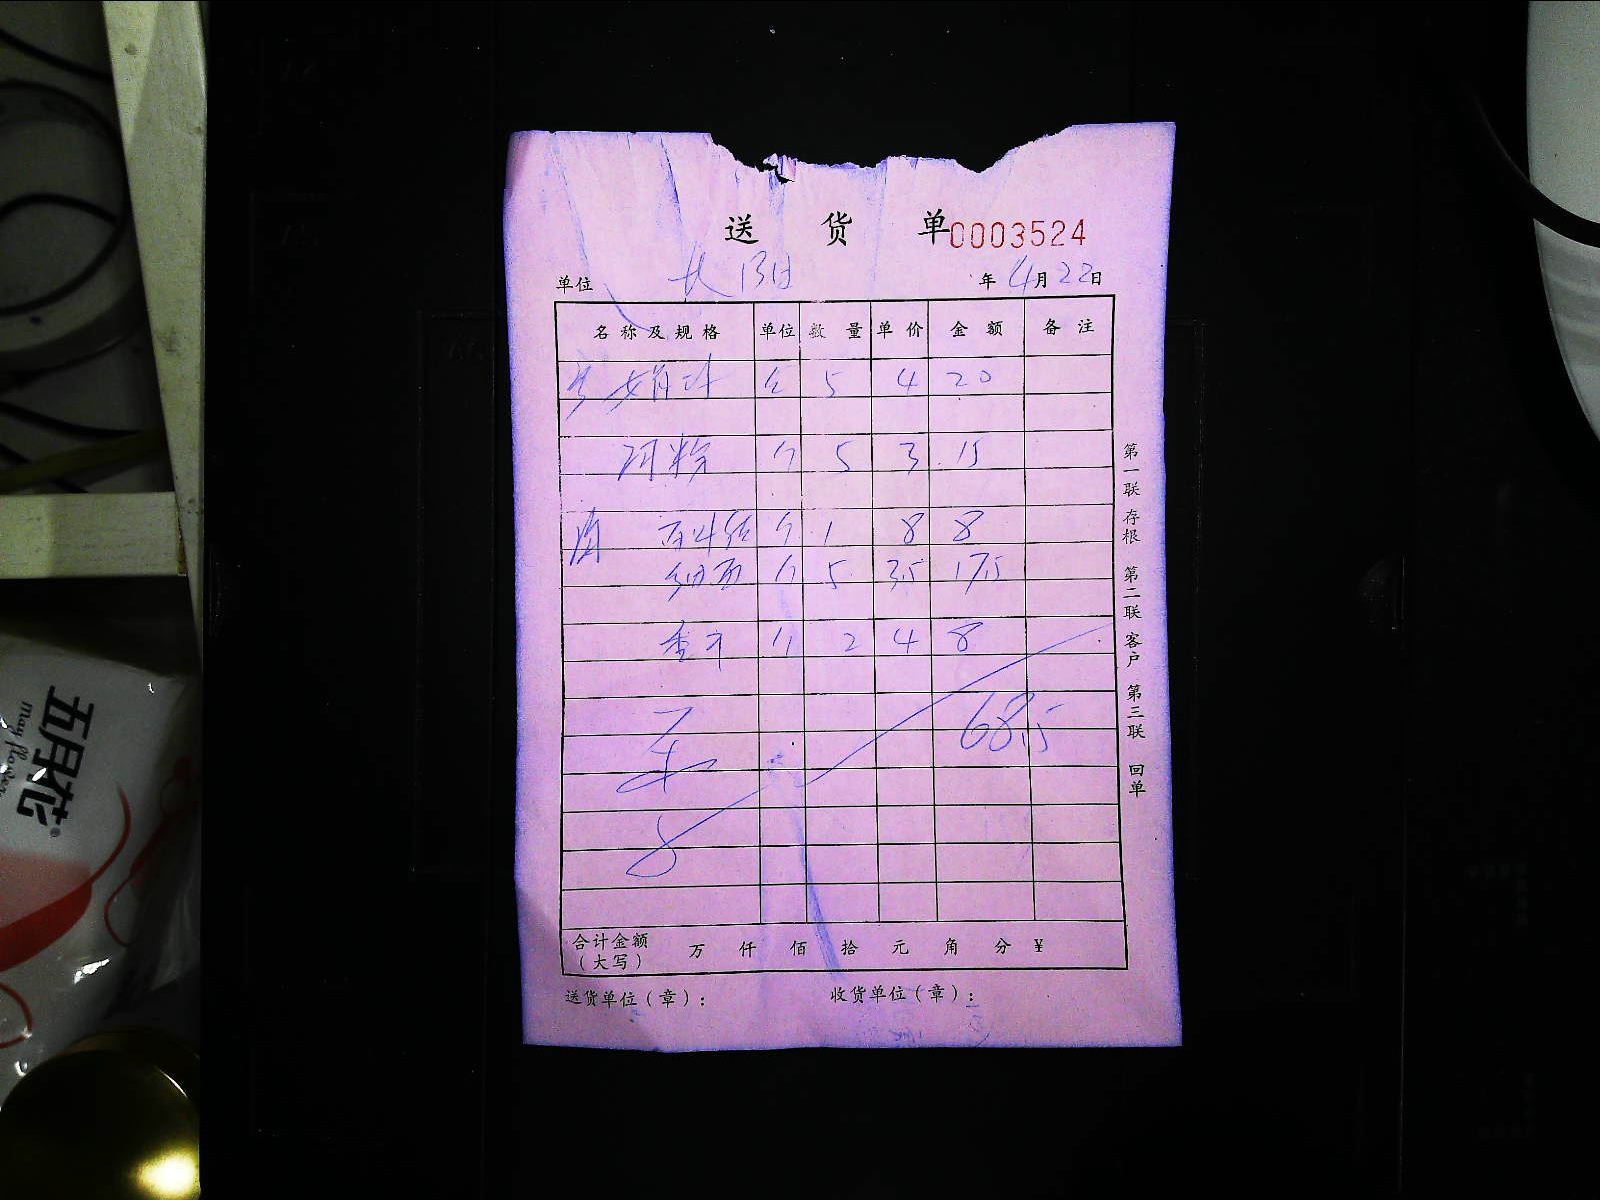 送 货 单 0003524
单位 年 4月 22日
名称及规格 单位 数量 单价 金额 备注
5 4 20
河粉 个 5 3 15
个 1 8 8
细面 个 5 3.5 17.5
香干 个 2 4 8
68.5
合计金额（大写） 万 仟 佰 拾 元 角 分 ¥
送货单位（章）： 收货单位（章）：
第一联 存根 第二联 客户 第三联 回单
五月花
may flower